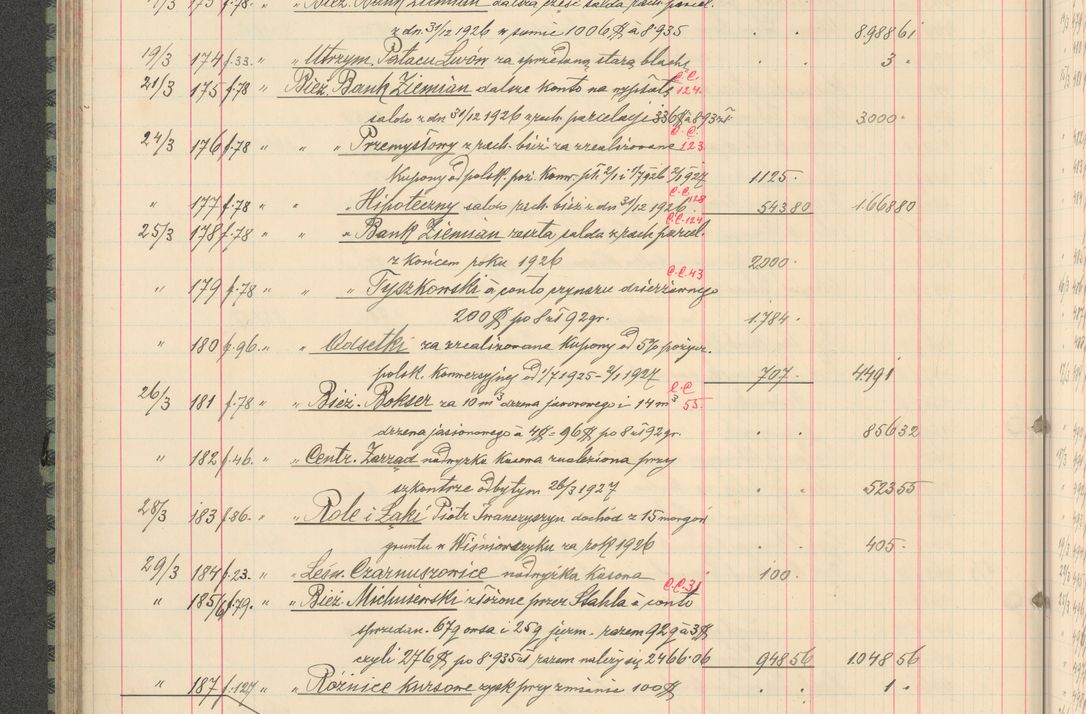 173 f.78. " " Bież. Bank Ziemian dalsza część salda rach. parcel.
z dn. 31/12 1926 w sumie 1006 $ à 8.935 . . 8.988 61
19/3 174 f.33. " " Utrzym. Pałacu Lwów za sprzedaną starą blachę . . 3 "
21/3 175 f.78 Bież. Bank Ziemian dalsze konto na wypłatę C.C. 124.
saldo z dn 31/12 1926 z rach. parcelacji 336 $ à 8.93 zł. 3000.
24/3 176 f.78 " " " Przemysłowy z rach. bież za zrealizowane C.C. 123
kupony od polsk. poż. Konw. pł. 2/1 i 1/7 926 2/1 927 1125.
" 177 f.78 " " " Hipoteczny saldo rach. bież z dn 31/12 1926 C.C. 128 543 80 1.668 80
25/3 178 f.78 " " " Bank Ziemian reszta salda z rach parcel. C.C. 124
z końcem roku 1926 2000.
" 179 f.78 " " Tyszkowski à conto czynszu dzierżawnego C.C. 43
200 $ po 8 zł 92 gr. 1.784.
" 180 f.96. " " Odsetki za zrealizowane kupony od 5% pożycz.
polsk. Konwersyjnej od 1/7 1925 - 2/1 1927 707. 4.491
26/3 181 f.78 " Bież. Bokser za 10 m³ drzewa jaworowego i 14 m³ C.C. 55.
drzewa jasionowego à 4 $ = 96 $ po 8 zł 92 gr. . . 856 32
" 182 f.46. " " Centr. Zarząd nadwyżka kasowa znaleziona przy
szkontrze odbytym 26/3 1927 . . 523 55
28/3 183 f.86. " " Role i Łąki Piotr Iwanczyszyn dochód z 15 morgów
gruntu w Wiśniowczyku za rok 1926 . . 405.
29/3 184 f.23. " " Leśn. Czarnuszowice nadwyżka kasowa 100.
" 185/6 f.79. " " Bież. złożone przez Stahla à conto C.C. 31
sprzedan. 67 q owsa i 25 q jęczm. razem 92 q à 3 $
czyli 276 $ po 8.935 zł razem należy się 2466.06 948 56 1.048 56
" 187 f.127 " " Różnice kursowe zysk przy zmianie 100 $ . . 1 "